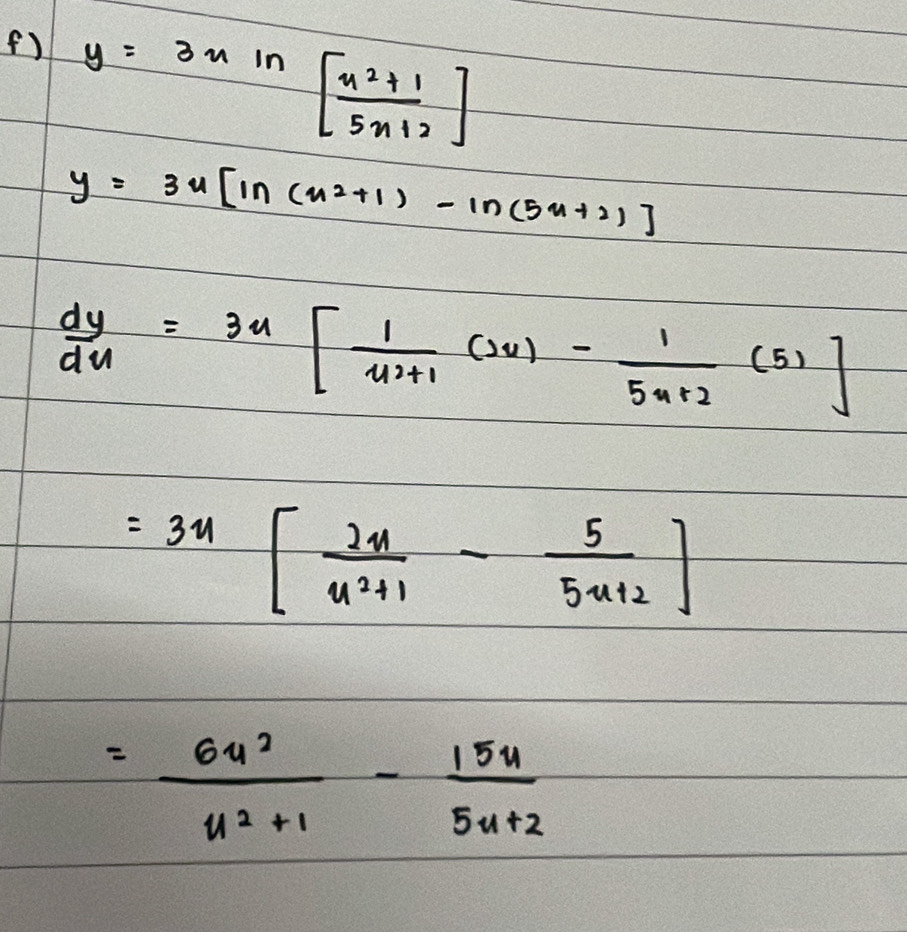 f) y = 3u ln [ (u² + 1) / (5u + 2) ]
y = 3u [ ln (u² + 1) - ln (5u + 2) ]
dy/du = 3u [ 1/(u² + 1) (2u) - 1/(5u + 2) (5) ]
= 3u [ 2u/(u² + 1) - 5/(5u + 2) ]
= 6u²/(u² + 1) - 15u/(5u + 2)